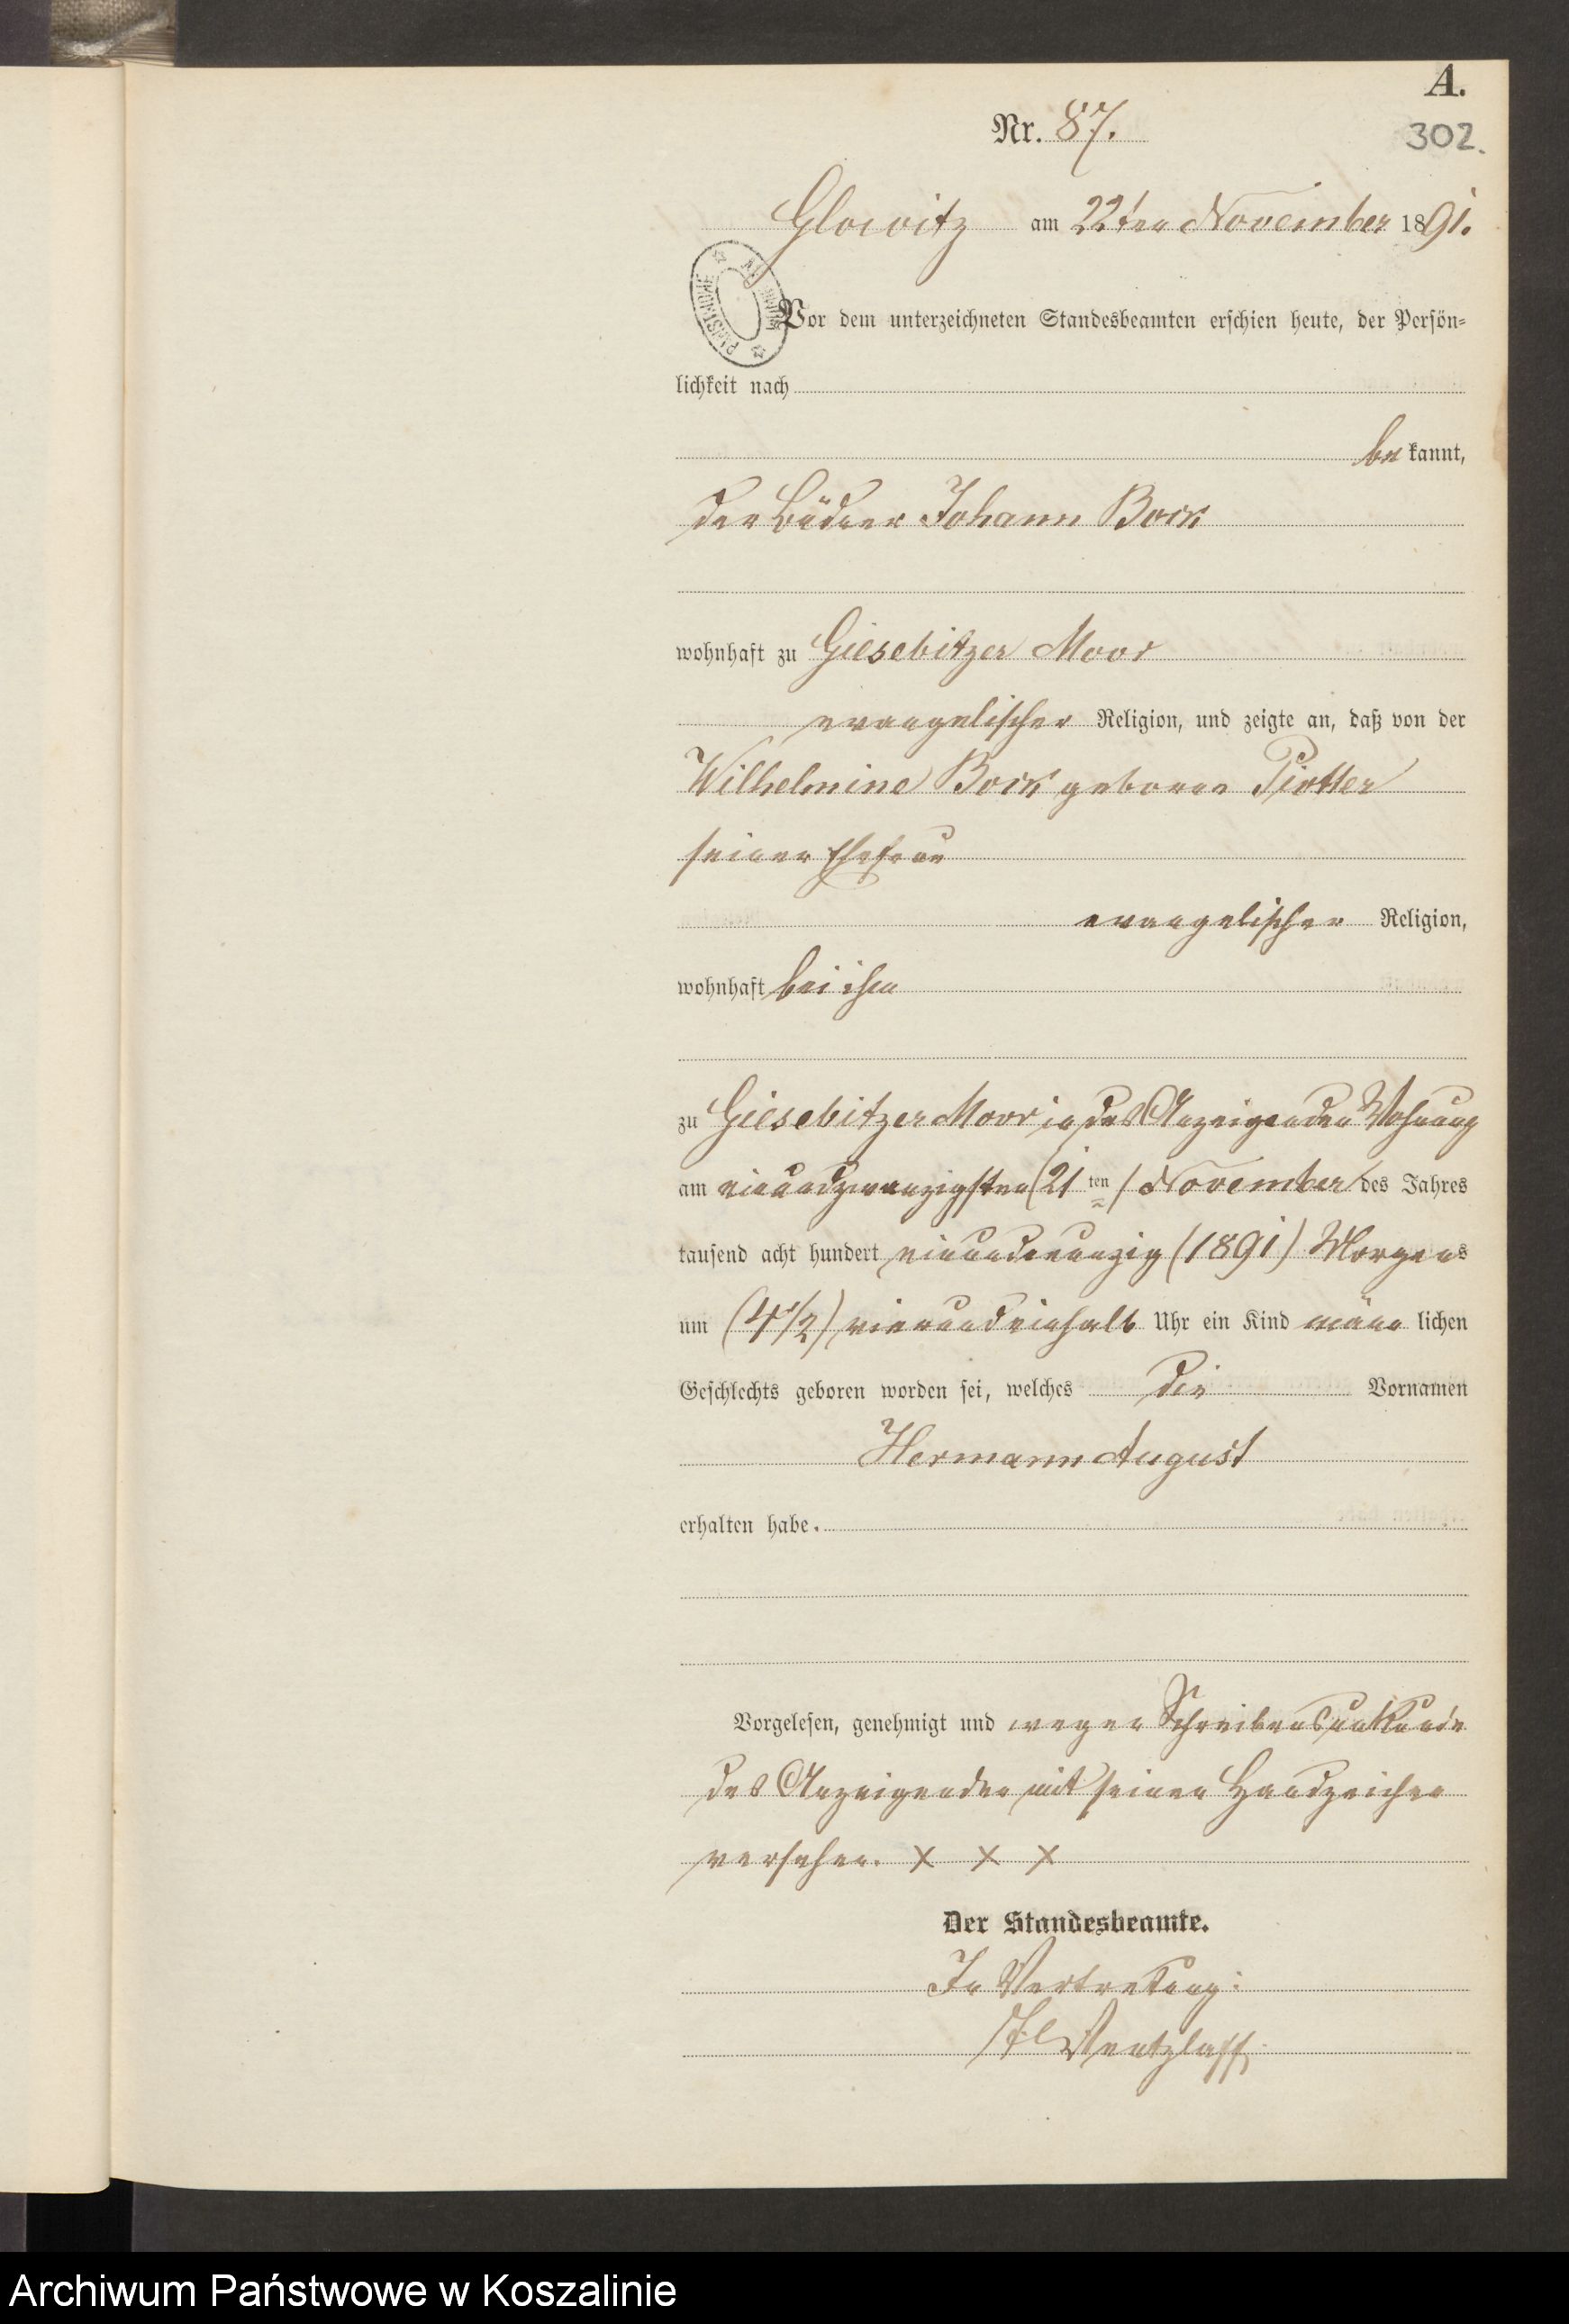 A.
Nr. 87.
302.
Glowitz am 22ten November 1891.
Vor dem unterzeichneten Standesbeamten erschien heute, der Persön-
lichkeit nach
be kannt,
der Büdner Johann Bock
wohnhaft zu Giesebitzer Moor
evangelischer Religion, und zeigte an, daß von der
Wilhelmine Bock geborne Piotter
seiner Ehefrau
evangelischer Religion,
wohnhaft bei ihm
zu Giesebitzer Moor in des Anzeigenden Wohnung
am einundzwanzigsten (21ten) November des Jahres
tausend acht hundert einundneunzig (1891) Morgens
um (4 1/2) vierundeinhalb Uhr ein Kind männ lichen
Geschlechts geboren worden sei, welches die Vornamen
Hermann August
erhalten habe.
Vorgelesen, genehmigt und wegen Schreibensunkunde
des Anzeigenden mit seinen Handzeichen
versehen. X X X
Der Standesbeamte.
In Vertretung:
Wentzlaff
Archiwum Państwowe w Koszalinie